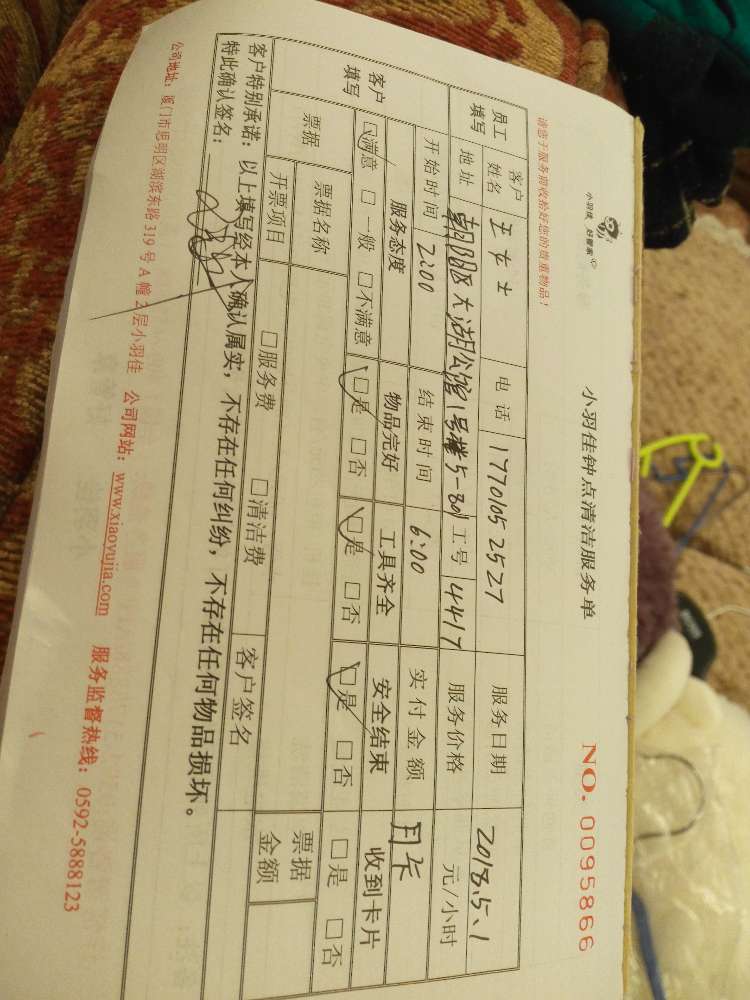 小羽佳 好管家
小羽佳钟点清洁服务单
NO. 0095866
请您于服务前收拾好您的贵重物品！
员工填写 客户姓名 王女士 电话 17701052527 服务日期 2018.5.1
地址 朝阳区大湖公馆1号楼5-301 工号 4417 服务价格 元/小时
开始时间 2:00 结束时间 6:00 实付金额 月卡
客户填写 服务态度 物品完好 工具齐全 安全结束 收到卡片
□满意 □一般 □不满意 □是 □否 □是 □否 □是 □否 □是 □否
票据 票据名称 票据金额
开票项目 □服务费 □清洁费 客户签名
客户特别承诺：以上填写经本人确认属实，不存在任何纠纷，不存在任何物品损坏。
特此确认签名：
公司地址：厦门市思明区湖滨东路 319 号 A 幢 2 层小羽佳 公司网站：www.xiaoyujia.com 服务监督热线：0592-5888123